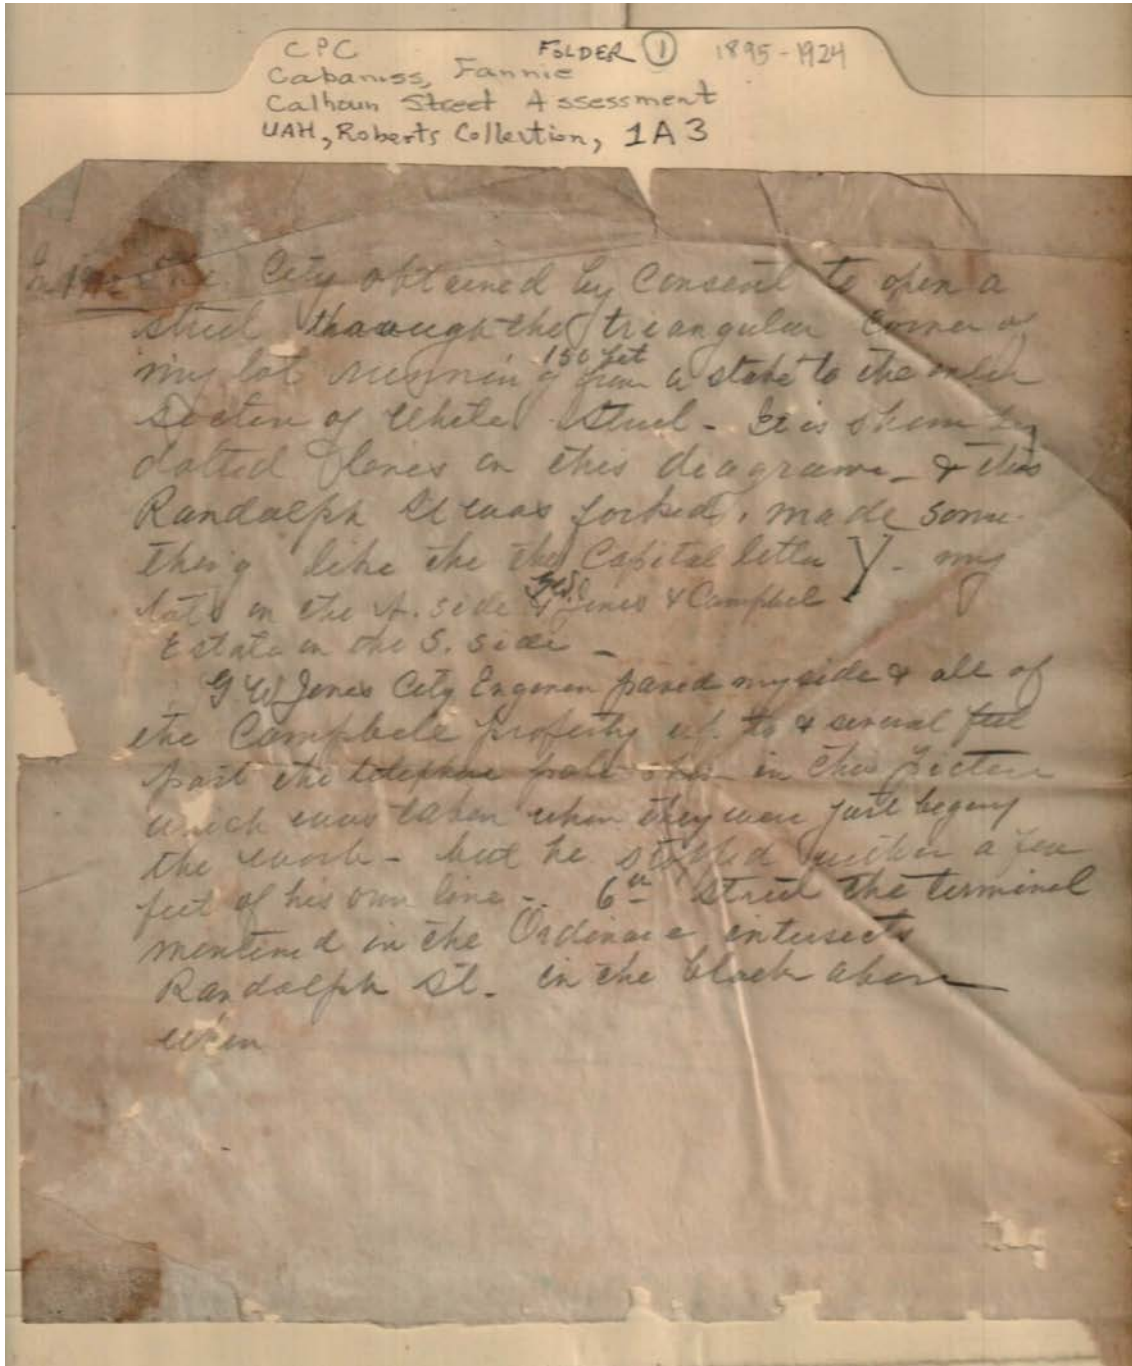 CPC FOLDER 1 1895-1924
Cabaniss, Fannie
Calhoun Street Assessment
UAH, Roberts Collection, 1A3
The City obtained by Consent to open a
street through the triangular Corner of
150 feet
my lot running from a stake to the
of White Street - It is shown by
dotted lines on this diagram - & this
Randolph St was forked, made some-
thing like the the Capital letter Y. my
lots on the N. side Jones & Campbel
Estate on the S. side -
G W Jones City Engineer paved my side & all of
the Campbell property up to & several feet
past the telephone pole in this picture
which was taken when they were just
the work - but he stopped within a few
feet of his own line - 6th Street the terminal
mentioned in the Ordinance intersects
Randolph St. in the block above